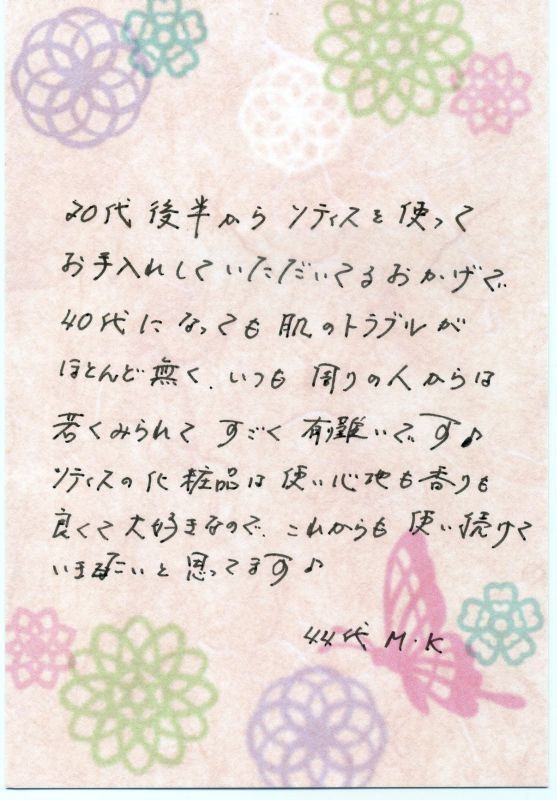 20代後半からソティスを使って
お手入れしていただいてるおかげで
40代になっても肌のトラブルが
ほとんど無く、いつも周りの人からは
若くみられてすごく有難いです♪
ソティスの化粧品は使い心地も香りも
良くて大好きなので、これからも使い続けて
いきたいと思ってます♪
44代 M・K